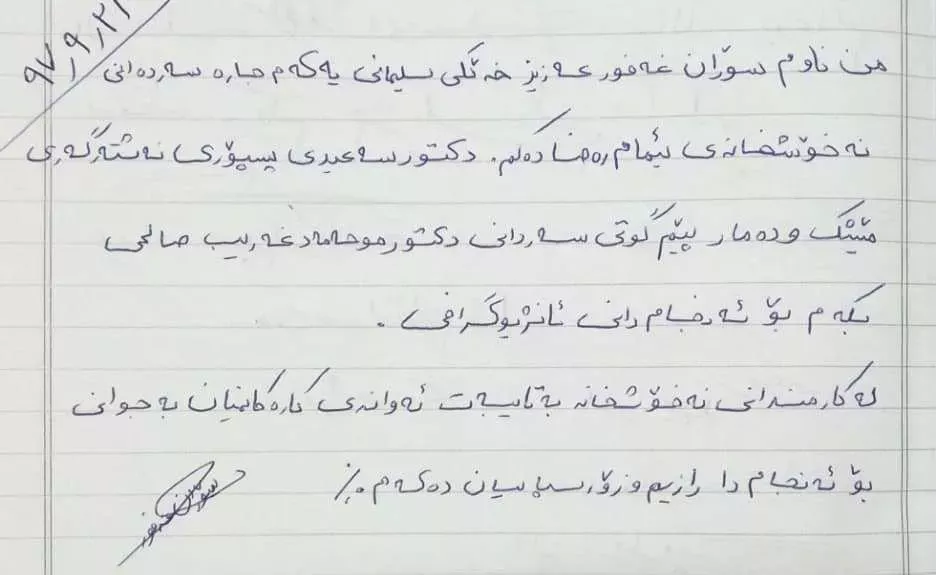 من ناوم سۆران غەفور عەزیز خەڵکی سلیمانی یەکەم جارە سەردەانی
نەخۆشخانەی ئیمام رەضا دەکم. دکتور سەعیدی پسپۆری نەشتەرگەری
مێشک و دەمار پێم گوتی سەردانی دکتور موحەمەد غەریب صالحی
بکەم بۆ ئەنجام دانی ئانژیوگرافی .
لە کارمندانی نەخۆشخانە بەتایبەت ئەوانەی کارەکانیان بە جوانی
بۆ ئەنجام دا رازیم و زۆر سپاسیان دەکەم